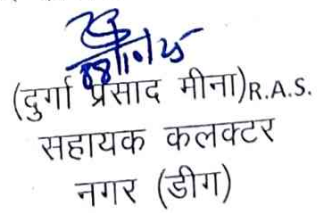 (दुर्गा प्रसाद मीना) R.A.S.
सहायक कलक्टर
नगर (डीग)